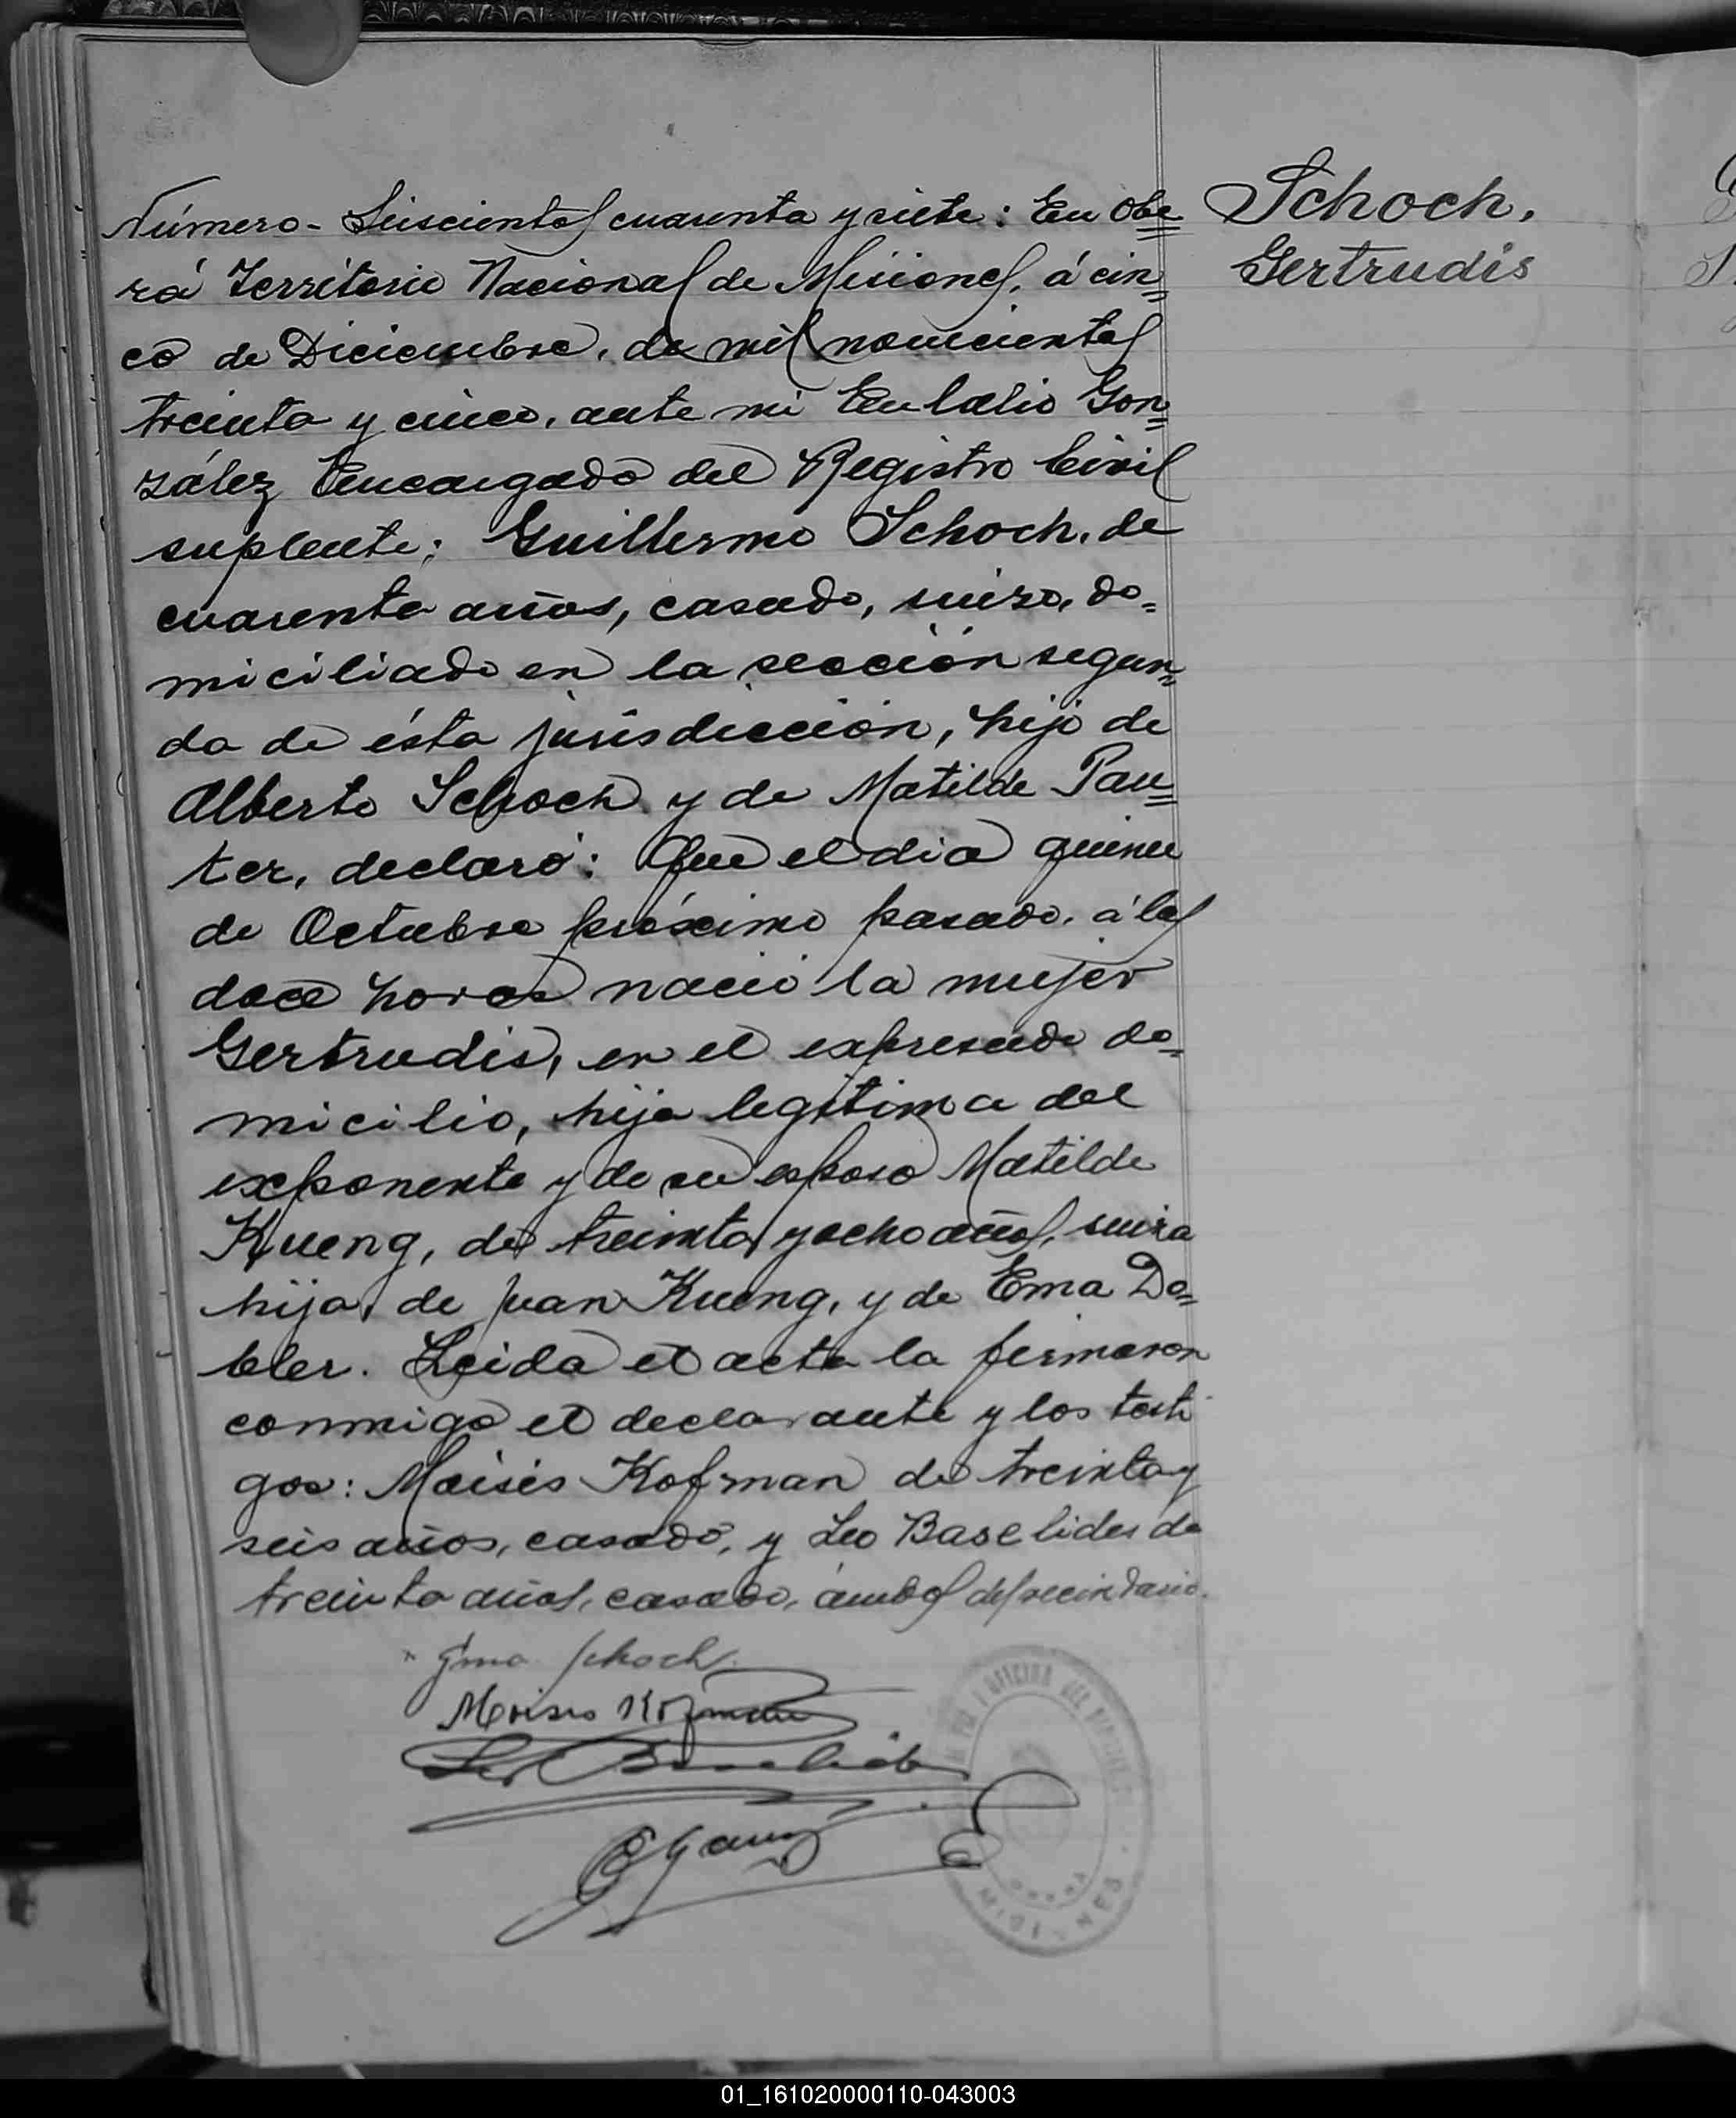 Schoch,
Gertrudis
Número - Seiscientos cuarenta y siete: En Obe=
rá Territorio Nacional de Misiones, á cin=
co de Diciembre, de mil novecientos
treinta y cinco, ante mi Eulalio Gon=
zález Encargado del Registro Civil
suplente; Guillermo Schoch, de
cuarenta años, casado, suizo, do=
miciliado en la sección segun=
da de ésta jurisdicción, hijo de
Alberto Schoch y de Matilde Pau=
ter, declaró: Que el dia quince
de Octubre próximo pasado, á las
doce horas nació la mujer
Gertrudis, en el expresado do=
micilio, hija legítima del
exponente y de su esposa Matilde
Kueng, de treinta y ocho años, suiza
hija de Juan Kueng, y de Ema Do=
bler. Leida el acta la firmaron
conmigo el declarante y los testi
gos: Moisés Kofman de treinta y
seis años, casado, y Leo Baselides de
treinta años, casado, ámbos del vecindario.
Gmo Schoch
Moises Kofman
Leo Baselides
OFICINA DEL
MISIONES
01_161020000110-043003